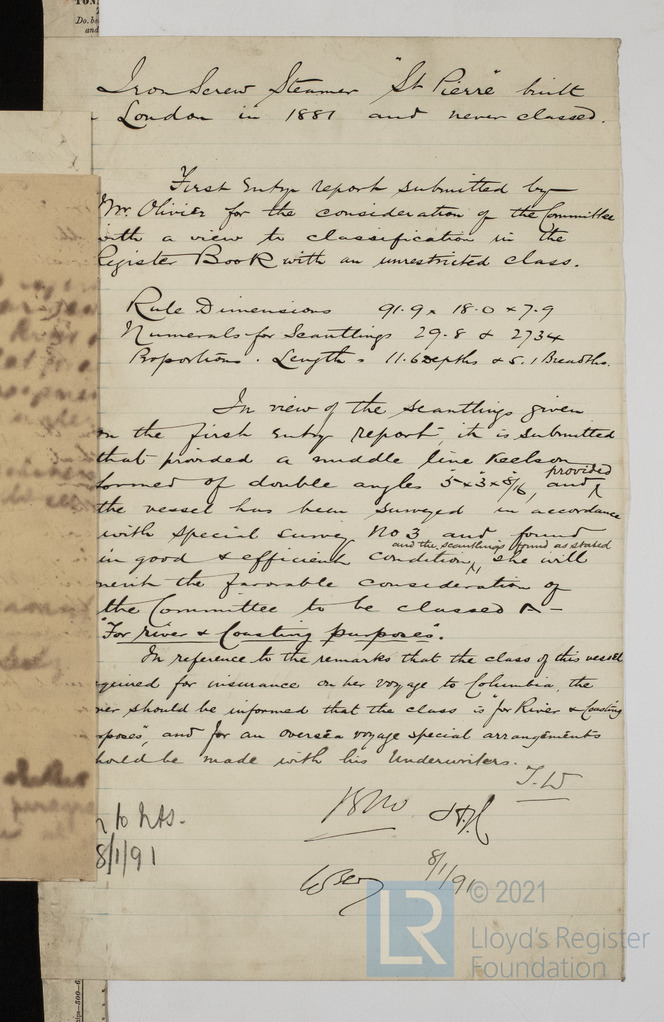 TON
Do. b
and
Iron Screw Steamer "St Pierre" built
London in 1881 and never classed.
First Entry report submitted by
Mr. Olivier for the consideration of the Committee
with a view to classification in the
Register Book with an unrestricted class.
Rule Dimensions 91.9 x 18.0 x 7.9
Numerals for Scantlings 29.8 & 2734
Proportions. Length = 11.6 Depths & 5.1 Breadths.
In view of the scantlings given
on the first entry report, it is submitted
that provided a middle line Keelson
formed of double angles 5 x 3 x 5/16, and provided
the vessel has been surveyed in accordance
with special survey No 3 and found
in good & efficient condition, and the scantlings found as stated she will
merit the favorable consideration of
the Committee to be classed A –
"For river & Coasting purposes".
In reference to the remarks that the class of this vessel
equired for insurance on her voyage to Columbia, the
ner should be informed that the class is "for River & Coasting
rposes", and for an oversea voyage special arrangements
hould be made with his Underwriters.
T.W
8/1/91
8/1/91
© 2021
LR
Lloyd's Register
Foundation